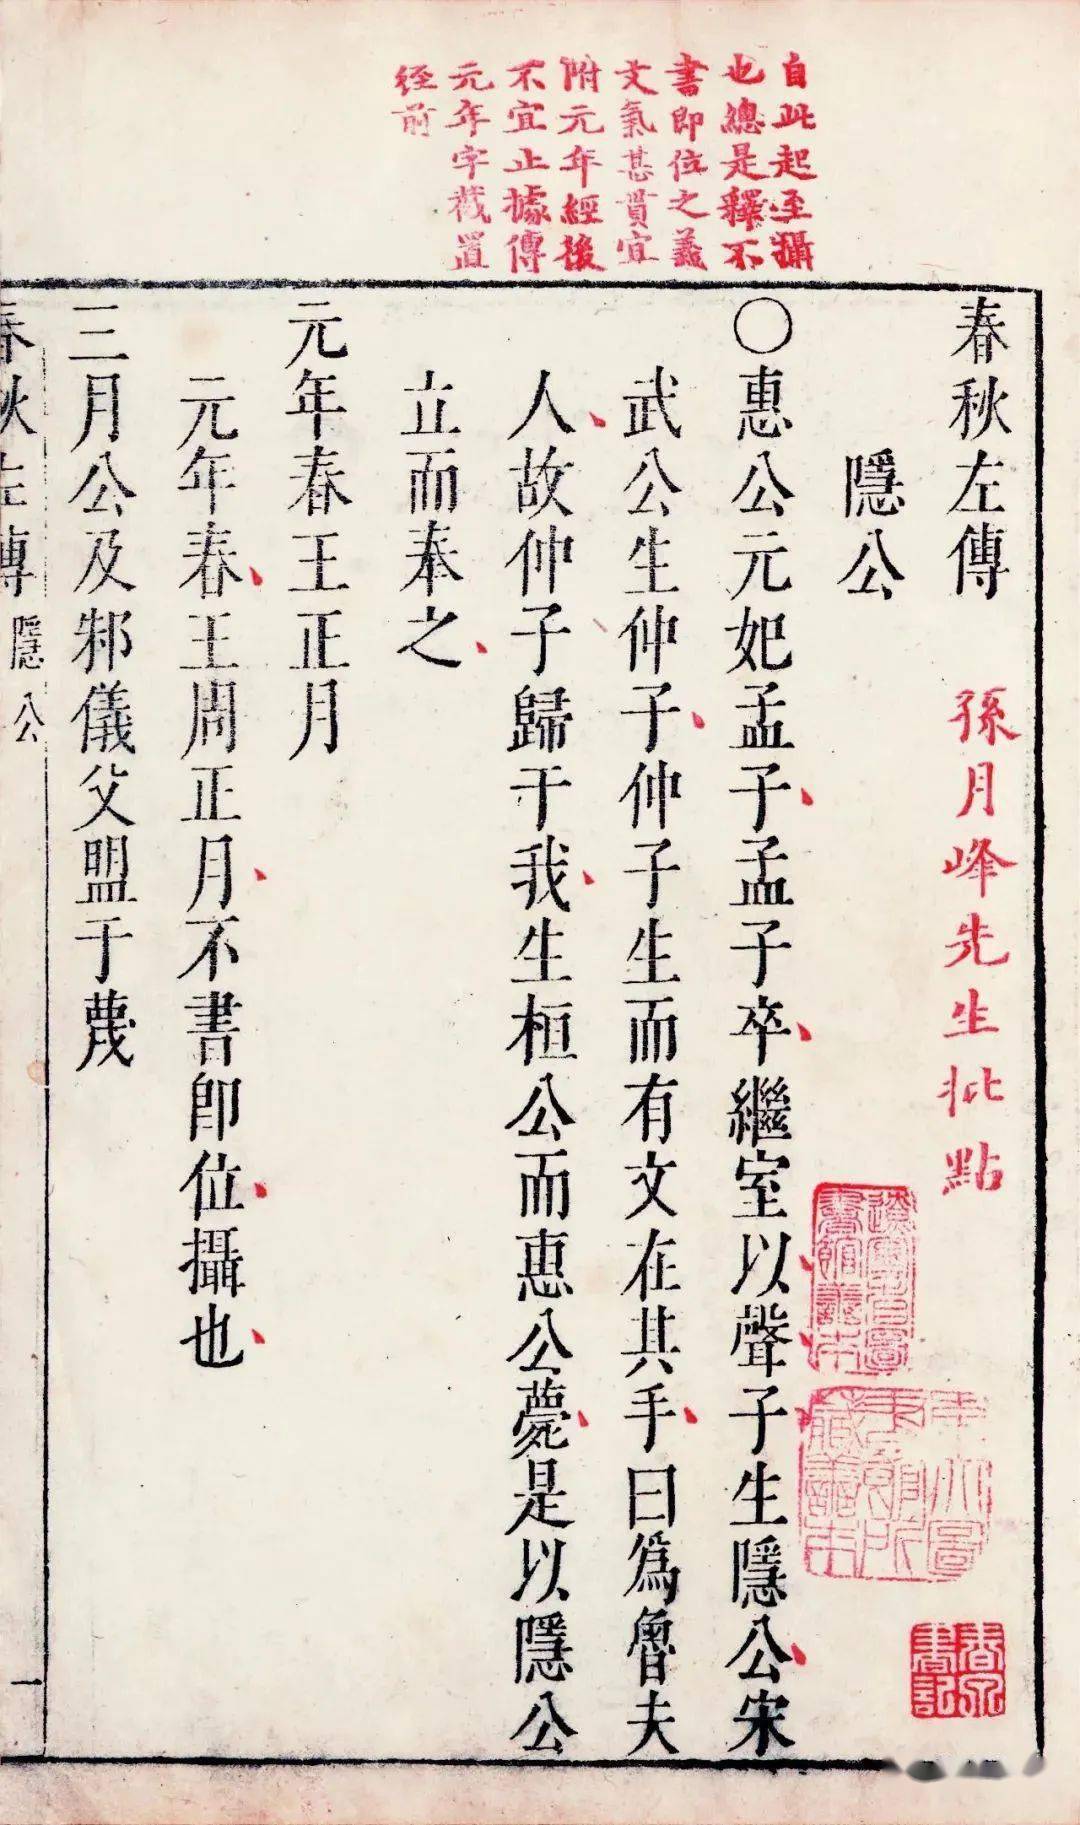 自此起至攝
也總是釋不
書即位之義
文氣甚貫宜
附元年經後
不宜止據傳
元年字截置
經前
春秋左傳
孫月峰先生批點
隱公
〇惠公元妃孟子孟子卒繼室以聲子生隱公宋
武公生仲子仲子生而有文在其手曰爲魯夫
人故仲子歸于我生桓公而惠公薨是以隱公
立而奉之
元年春王正月
元年春王周正月不書即位攝也
三月公及邾儀父盟于蔑
春秋左傳
隱公
一